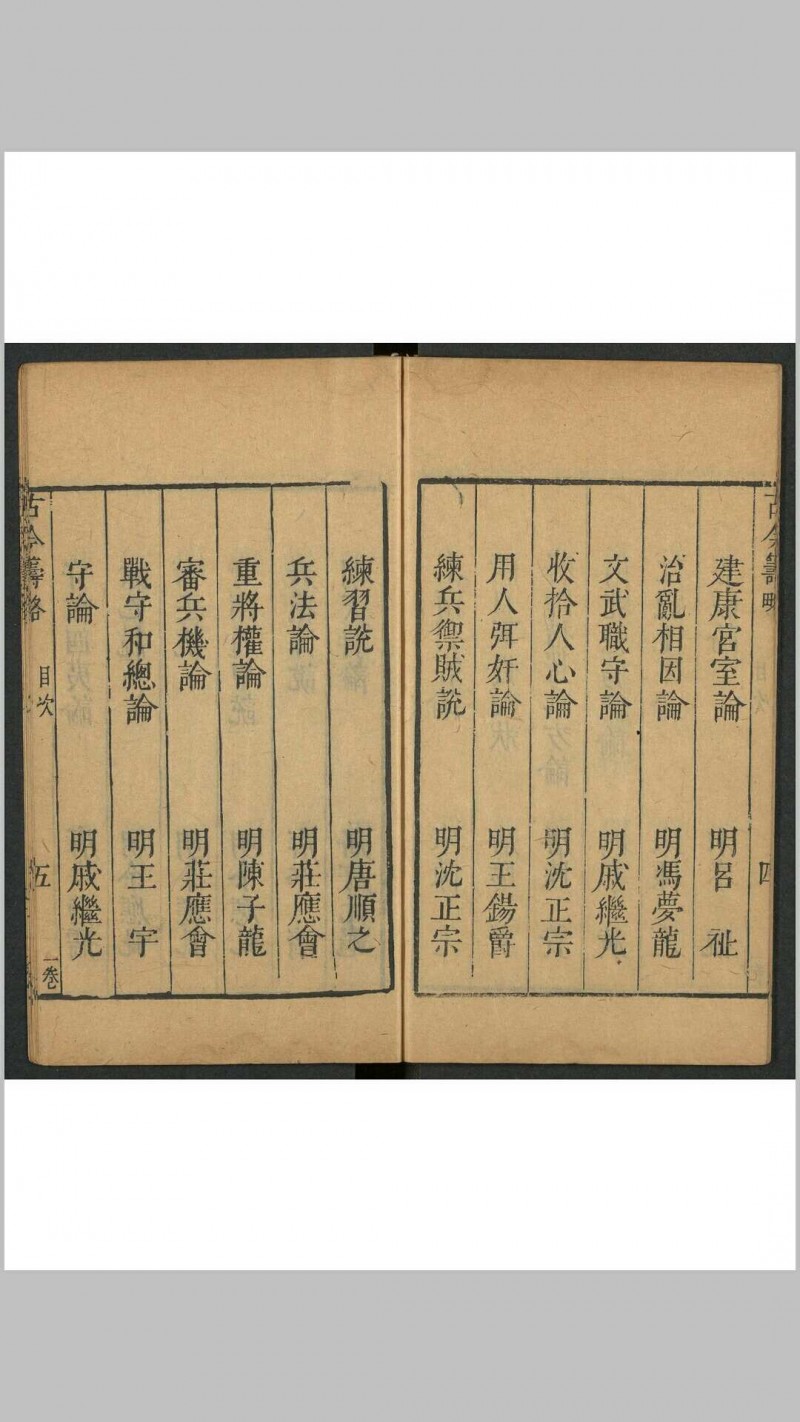 建康宮室論 明呂祉
治亂相因論 明馮夢龍
文武職守論 明戚繼光
收拾人心論 明沈正宗
用人弭奸論 明王錫爵
練兵禦賊說 明沈正宗
練習說 明唐順之
兵法論 明莊應會
重將權論 明陳子龍
審兵機論 明莊應會
戰守和總論 明王宇
守論 明戚繼光
古今籌略 目次 五 一卷